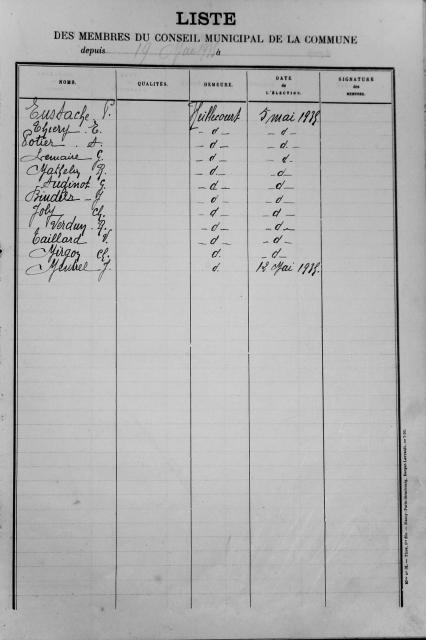 LISTE
DES MEMBRES DU CONSEIL MUNICIPAL DE LA COMMUNE
depuis 19 Mai à
NOMS. QUALITÉS. DEMEURE. DATE de L'ÉLECTION. SIGNATURE des MEMBRES.
Eustache P. 5 mai 1935
Thiery E. - d - - d -
Potier A. - d - - d -
Lemaire G. - d - - d -
R. - d - - d -
Audinot G. - d - - d -
- d - - d -
Joly Ch. - d - - d -
Verdun R. - d - - d -
Taillard V. - d - - d -
Mirgon Ch. d. - d -
J. d. 12 Mai 1935.